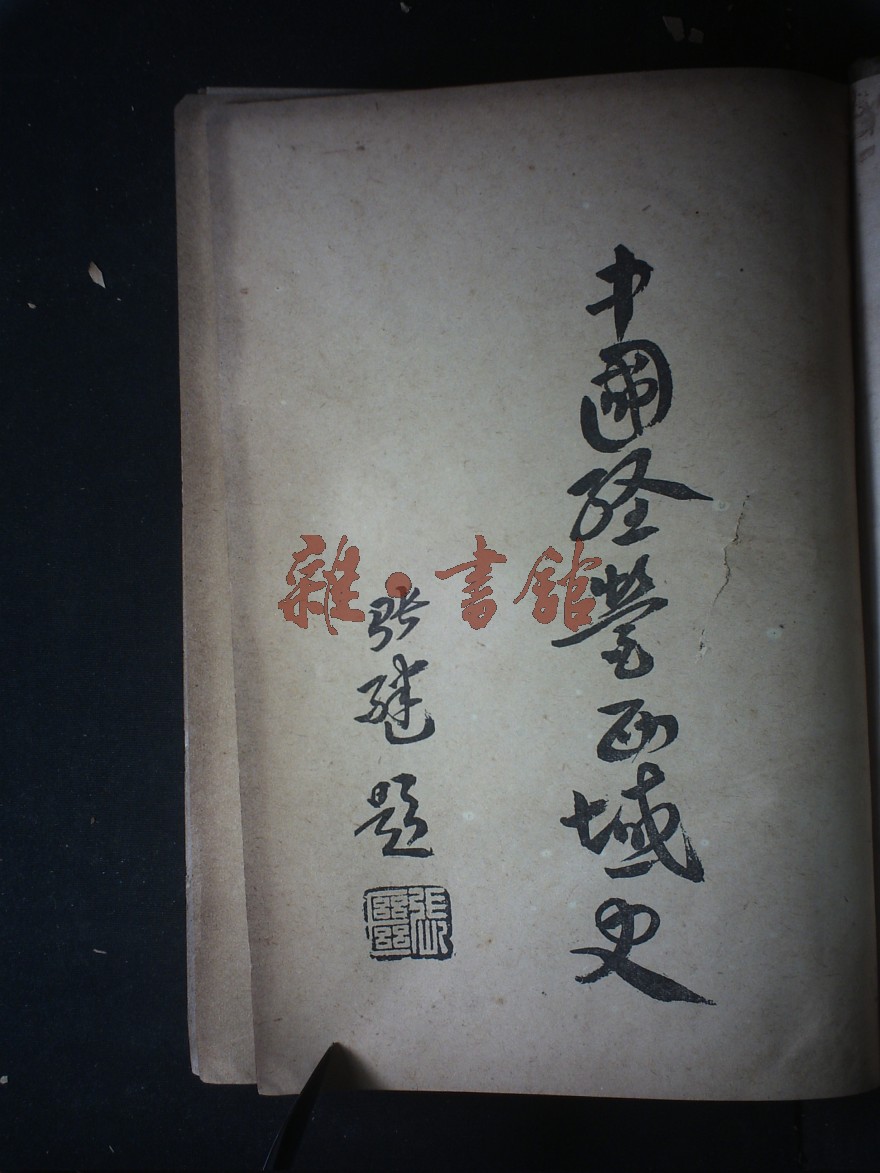 中國經營西域史
張繼題
雜·書館